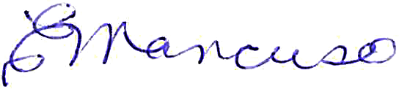 E Mancuso